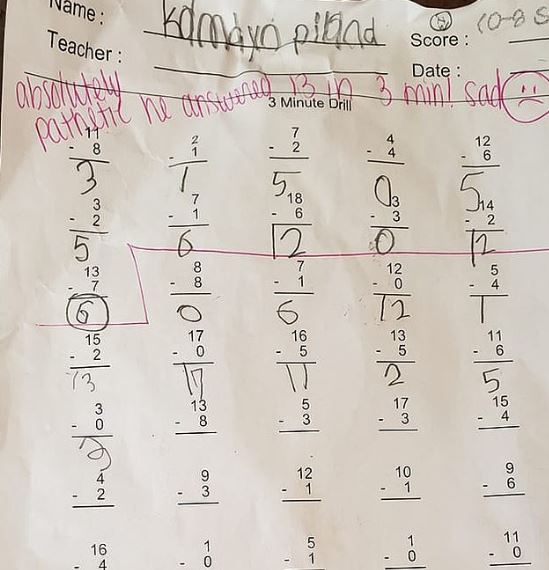 Name: Kamdyn piland
Score: 8 10-8 S
Teacher:
Date:
absolutely
pathetic he answered 13 in 3 min! sad
3 Minute Drill
11 2 7 4 12
- 8 - 1 - 2 - 4 - 6
3 1 5 0 5
3 7 18 3 14
- 2 - 1 - 6 - 3 - 2
5 6 12 0 12
13 8 7 12 5
- 7 - 8 - 1 - 0 - 4
6 0 6 12 1
15 17 16 13 11
- 2 - 0 - 5 - 5 - 6
13 17 11 2 5
3 13 5 17 15
- 0 - 8 - 3 - 3 - 4
3
4 9 12 10 9
- 2 - 3 - 1 - 1 - 6
16 1 5 1 11
- 4 - 0 - 1 - 0 - 0